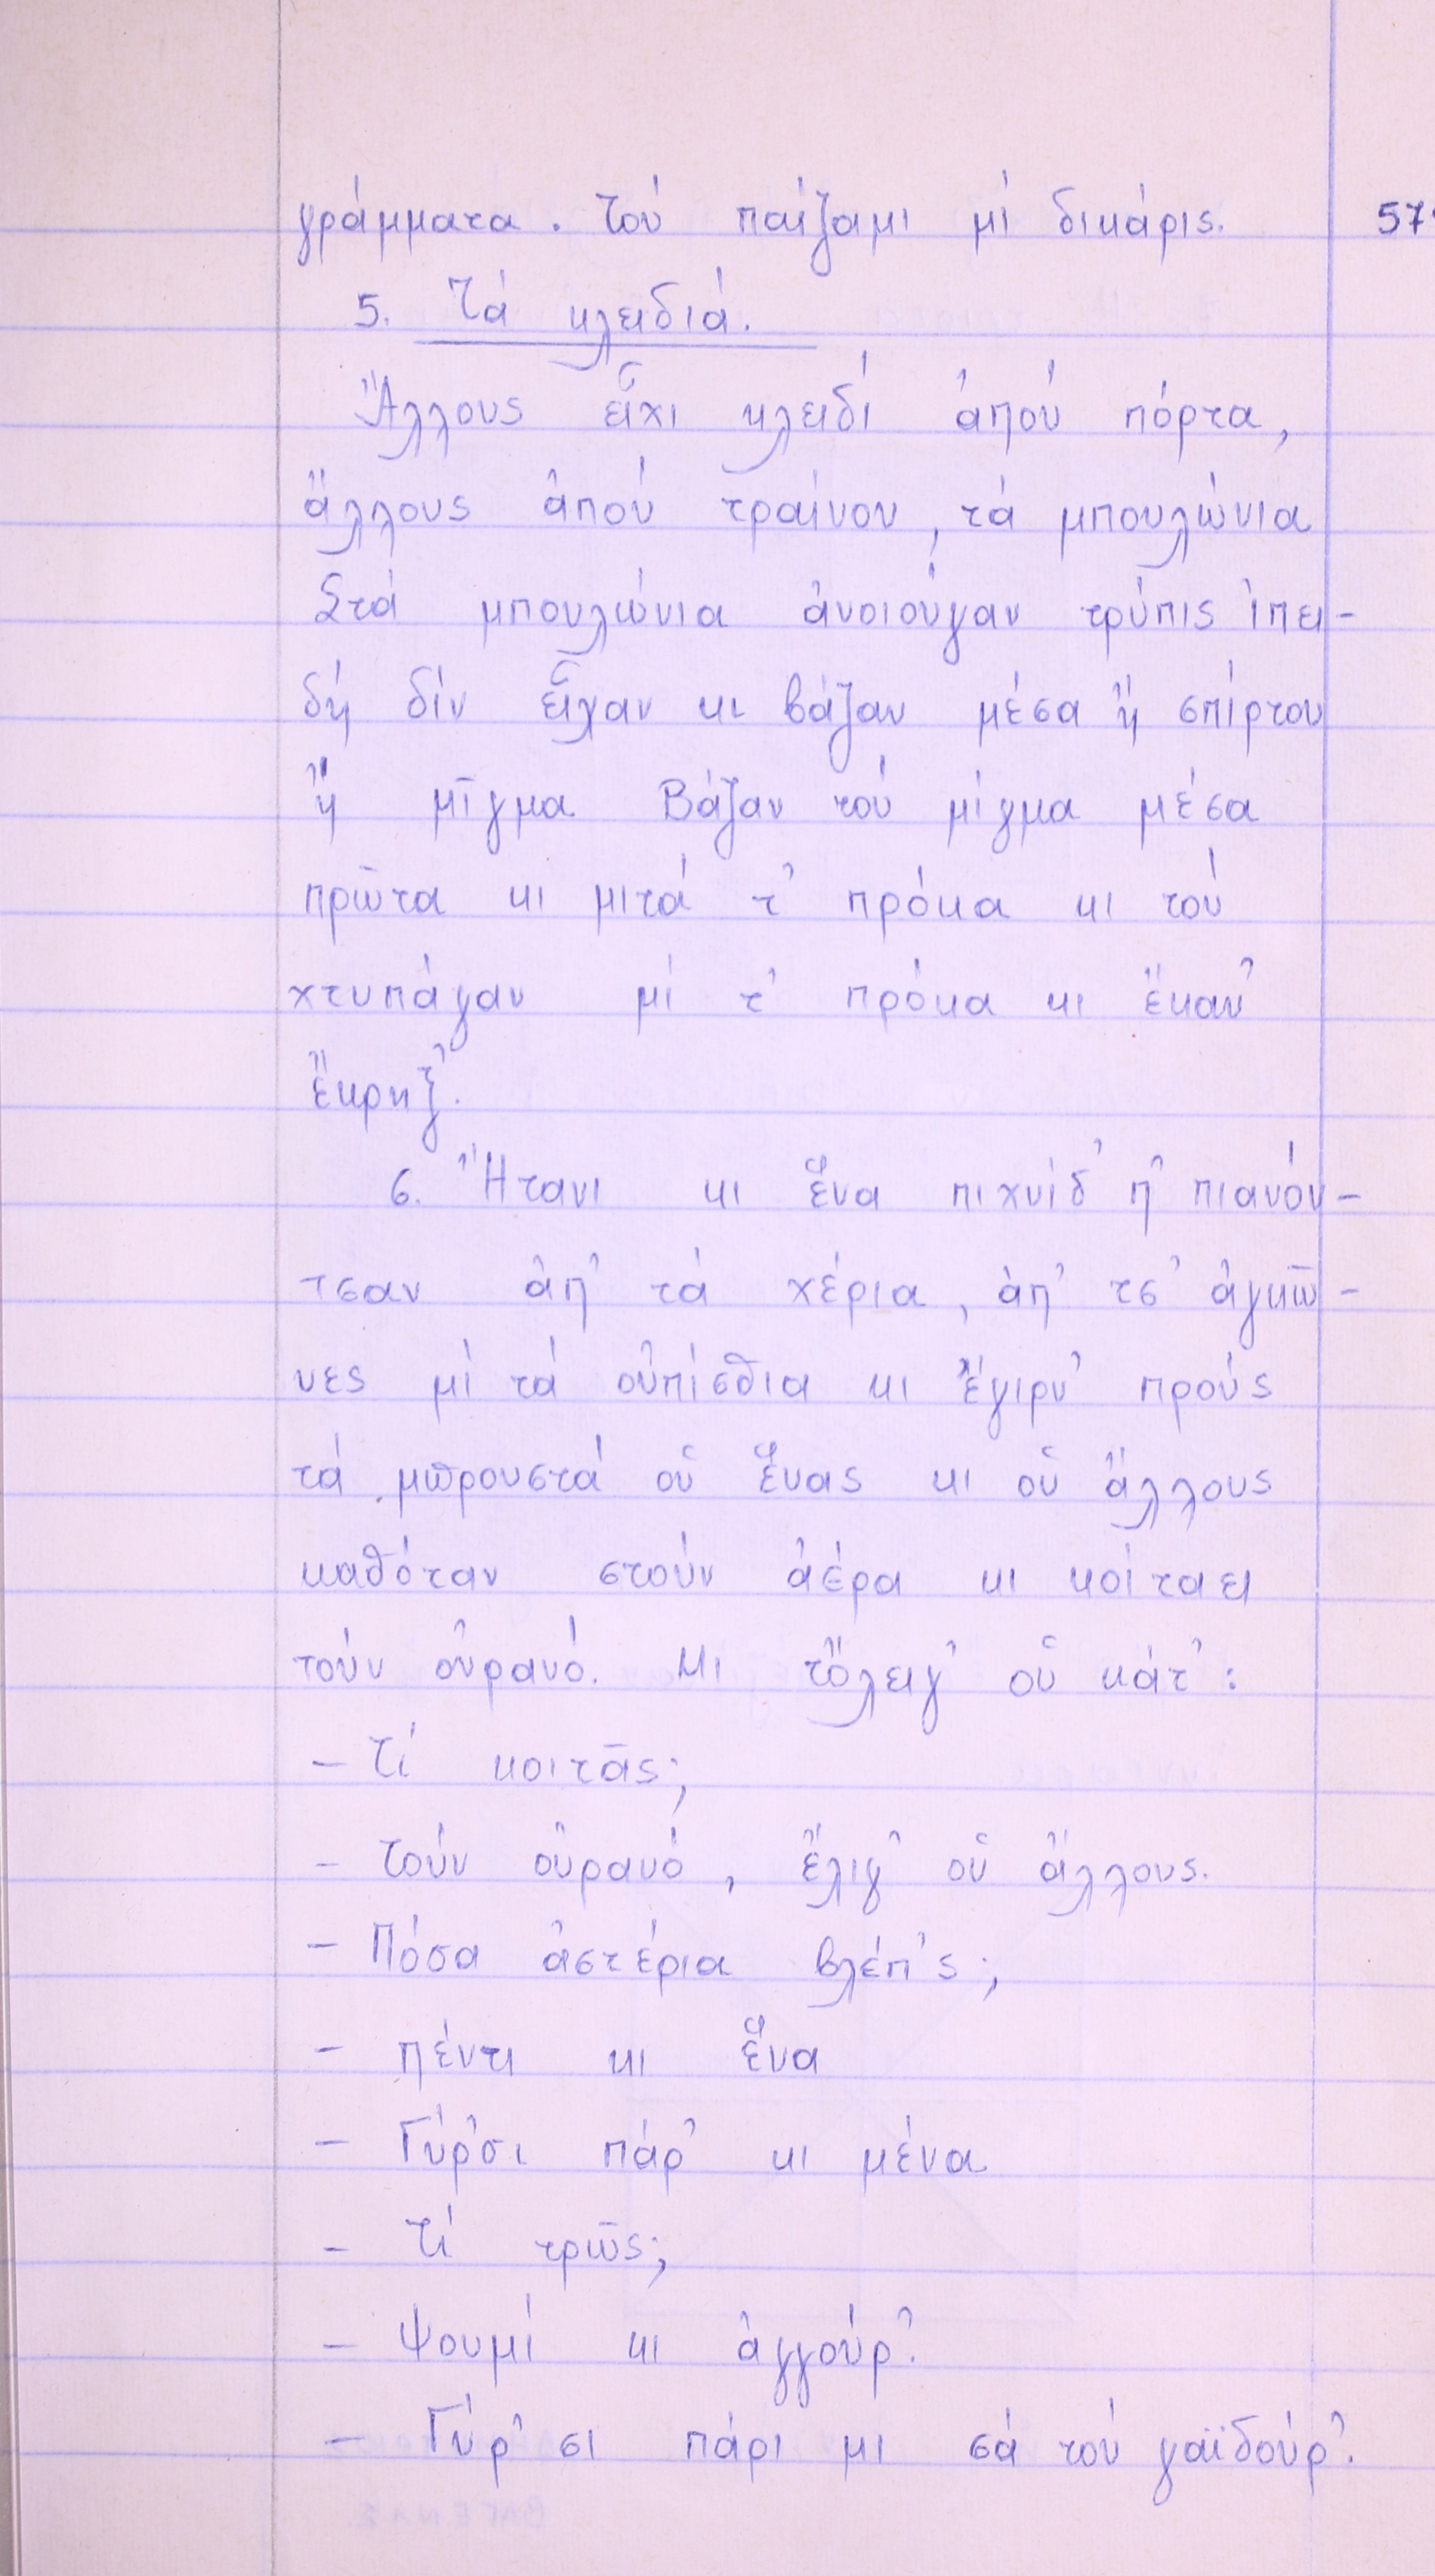 γράμματα. Τού παίζαμι μί δικάρις. 57
5. Τά κλειδιά.
Ἄλλους εἶχι κλειδί ἀπού πόρτα,
ἄλλους ἀπού τραίνου, τά μπουλώνια
Στά μπουλώνια ἀνοιούγαν τρύπις ἰπει-
δή δίν εἶχαν κι βάζαν μέσα ἤ σπίρτου
ἤ μῖγμα Βάζαν τού μίγμα μέσα
πρῶτα κι μιτά τ᾿ πρόκα κι τού
χτυπάγαν μί τ᾿ πρόκα κι ἔκαν᾿
ἔκρηξ᾿.
6. Ἤτανι κι ἕνα πιχνίδ᾿ π᾿ πιανόν-
τσαν ἀπ᾿ τά χέρια, ἀπ᾿ τσ᾿ ἀγκῶ-
νες μί τά οὐπίσθια κι ἔγιρν᾿ προύς
τά μπρουστά οὑ ἕνας κι οὑ ἄλλους
καθόταν στούν ἀέρα κι κοίταει
τούν οὐρανό. Κι τὄλειγ᾿ οὑ κάτ᾿:
- Τί κοιτᾶς;
- Τούν οὐρανό, ἔλιγ᾿ οὑ ἄλλους.
- Πόσα ἀστέρια βλέπ᾿ς;
- πέντι κι ἕνα
- Γύρ᾿σι πάρ᾿ κι μένα
- Τί τρῶς;
- Ψουμί κι ἀγγούρ᾿.
- Γύρ᾿σι πάρι μι σά τού γαϊδούρ᾿.